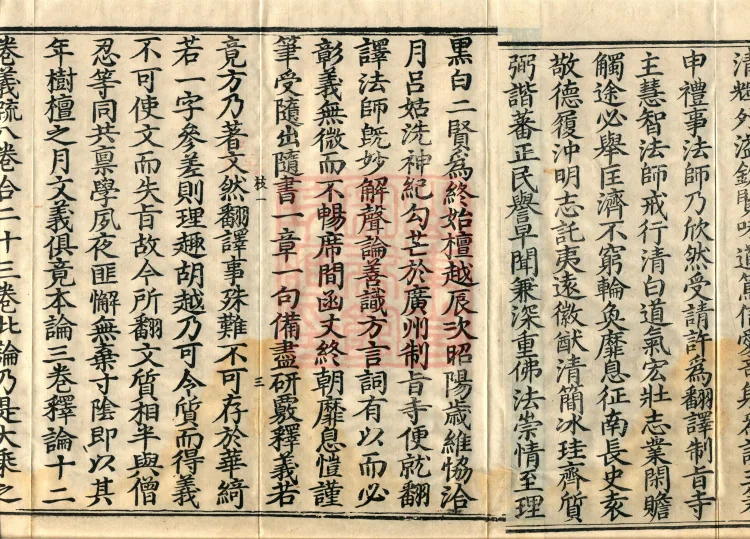 清輝外溢欽賢味道篤信愛奇
申禮事法師乃欣然受請許為翻譯制旨寺
主慧智法師戒行清白道氣宏壯志業閑贍
觸途必舉匡濟不窮輪奐靡息征南長史袁
敬德履沖明志託夷遠徽猷清簡冰珪齊質
弼諧蕃正民譽早聞兼深重佛法崇情至理
黑白二賢爲終始檀越辰次昭陽歲維恊洽
月呂姑洗神紀勾芒於廣州制旨寺便就翻
譯法師旣妙解聲論善識方言詞有以而必
彰義無微而不暢席間函丈終朝靡息愷謹
筆受隨出隨書一章一句備盡研覈釋義若
枝一
三
竟方乃著文然翻譯事殊難不可存於華綺
若一字參差則理趣胡越乃可令質而得義
不可使文而失旨故今所翻文質相半與僧
忍等同共禀學夙夜匪懈無棄寸陰即以其
年樹檀之月文義俱竟本論三卷釋論十二
卷義疏八卷合二十三卷此論乃是大乘之